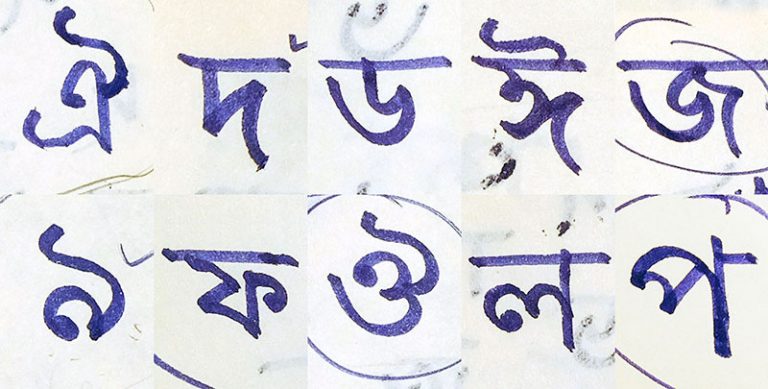 ঐ দ ড ঈ জ
ঌ ফ ঔ ল প